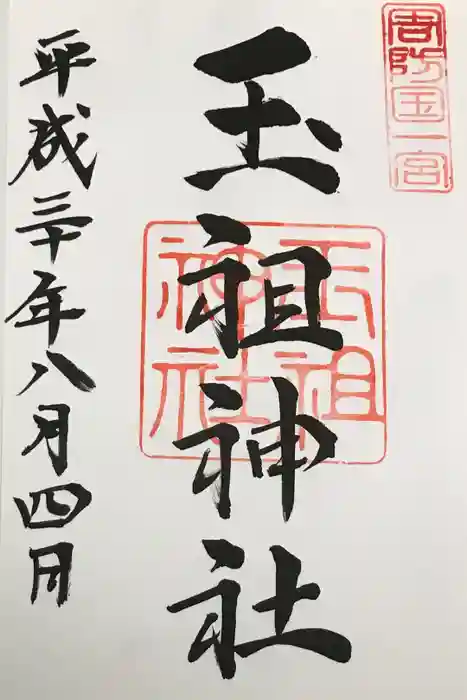 周防国一宮
玉祖神社
玉祖
神社
平成三十年八月四日